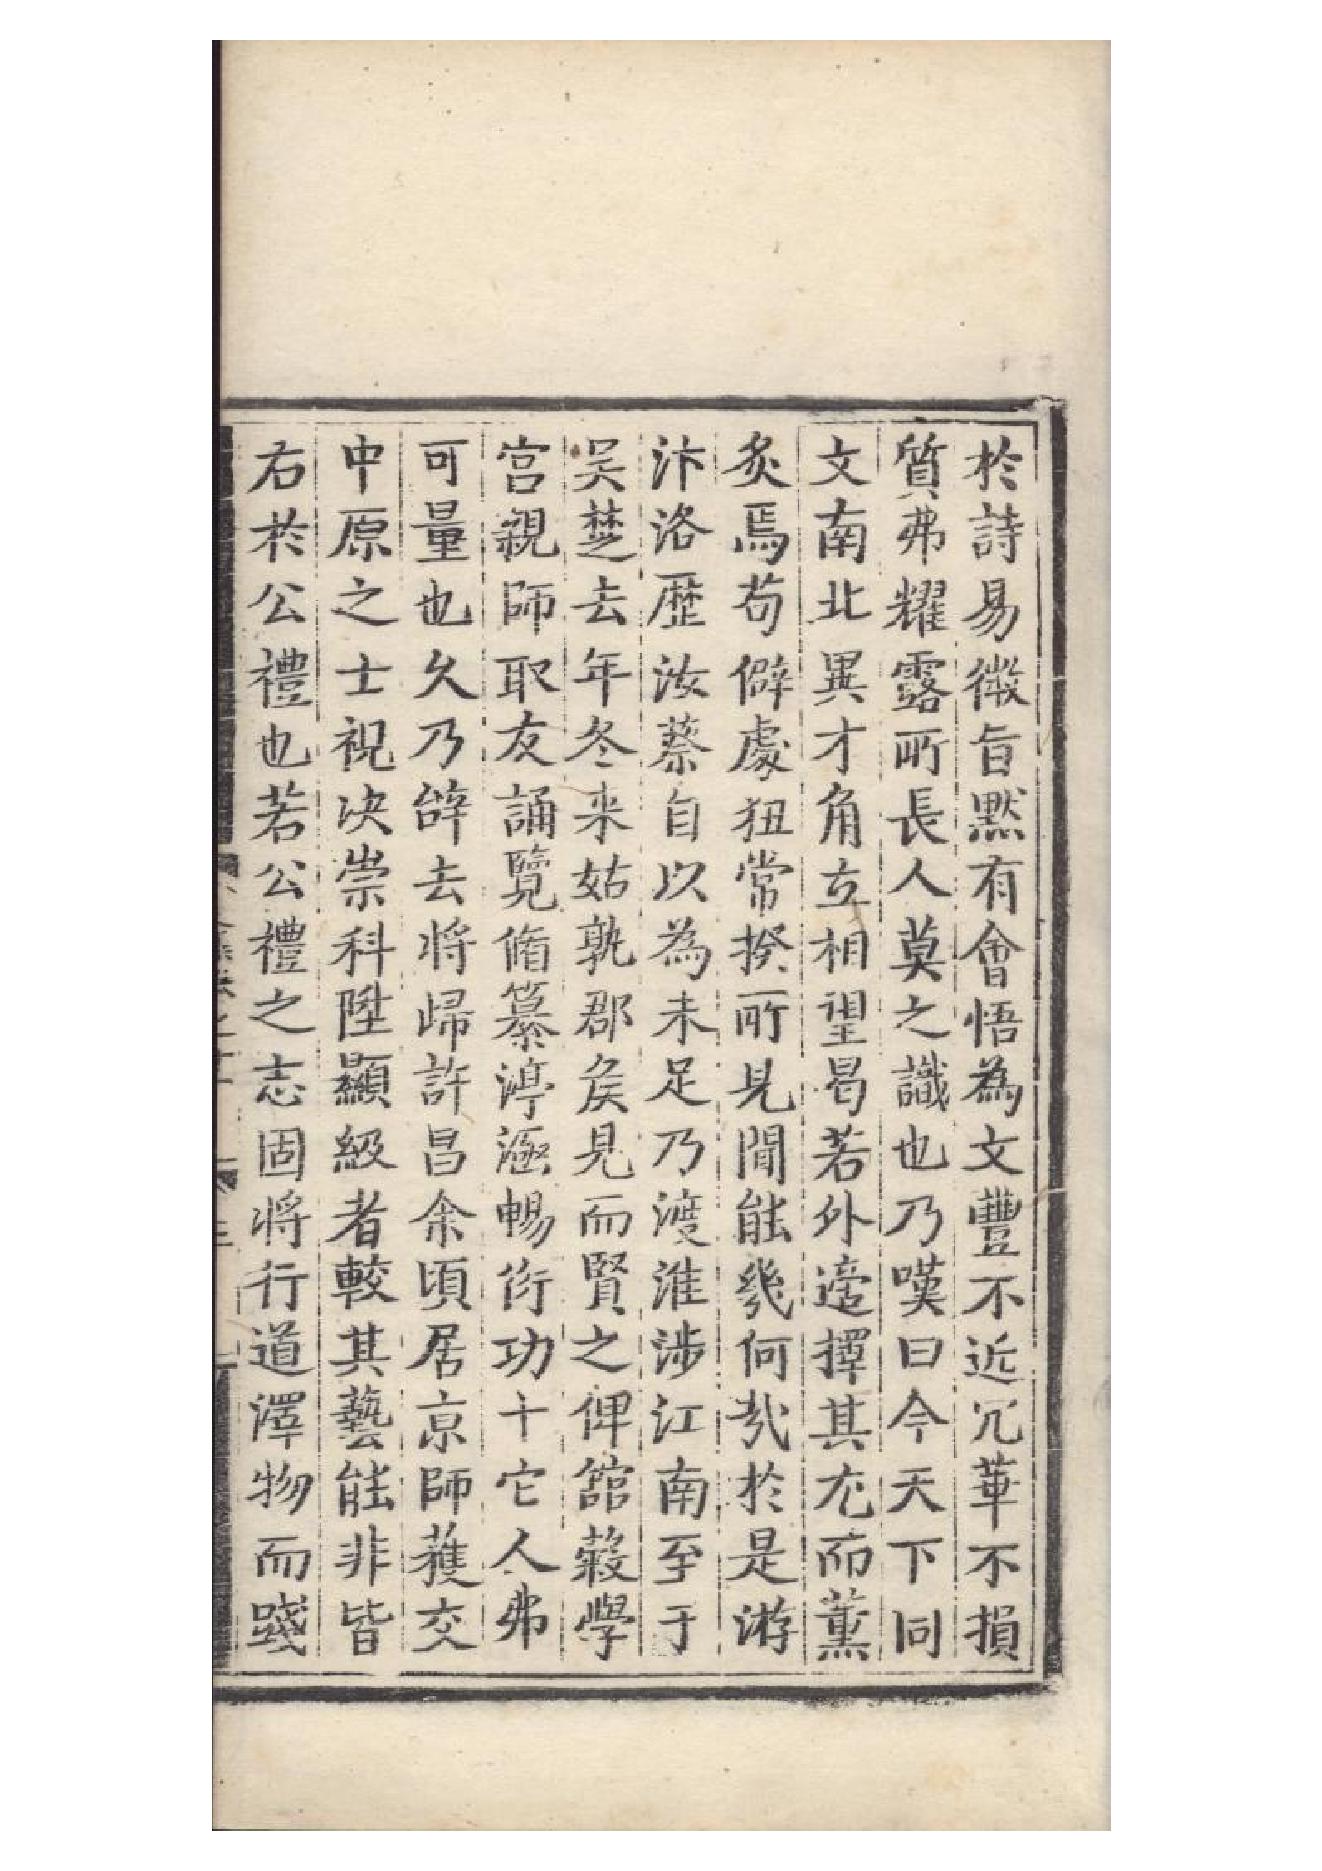 於詩易微旨默有會悟為文豐不近冗華不損
質弗耀露所長人莫之識也乃嘆曰今天下同
文南北異才角立相望曷若外遊擇其尤而薰
炙焉苟僻處狃常揆所見聞能幾何哉於是游
汴洛歷汝蔡自以為未足乃渡淮涉江南至于
吴楚去年冬来姑孰郡矦見而賢之俾舘糓學
宮親師取友誦覽脩纂渟涵暢衍功十它人弗
可量也久乃辤去將歸許昌余頃居京師獲交
中原之士視决崇科陞顯級者較其藝能非皆
右於公禮也若公禮之志固將行道澤物而踐